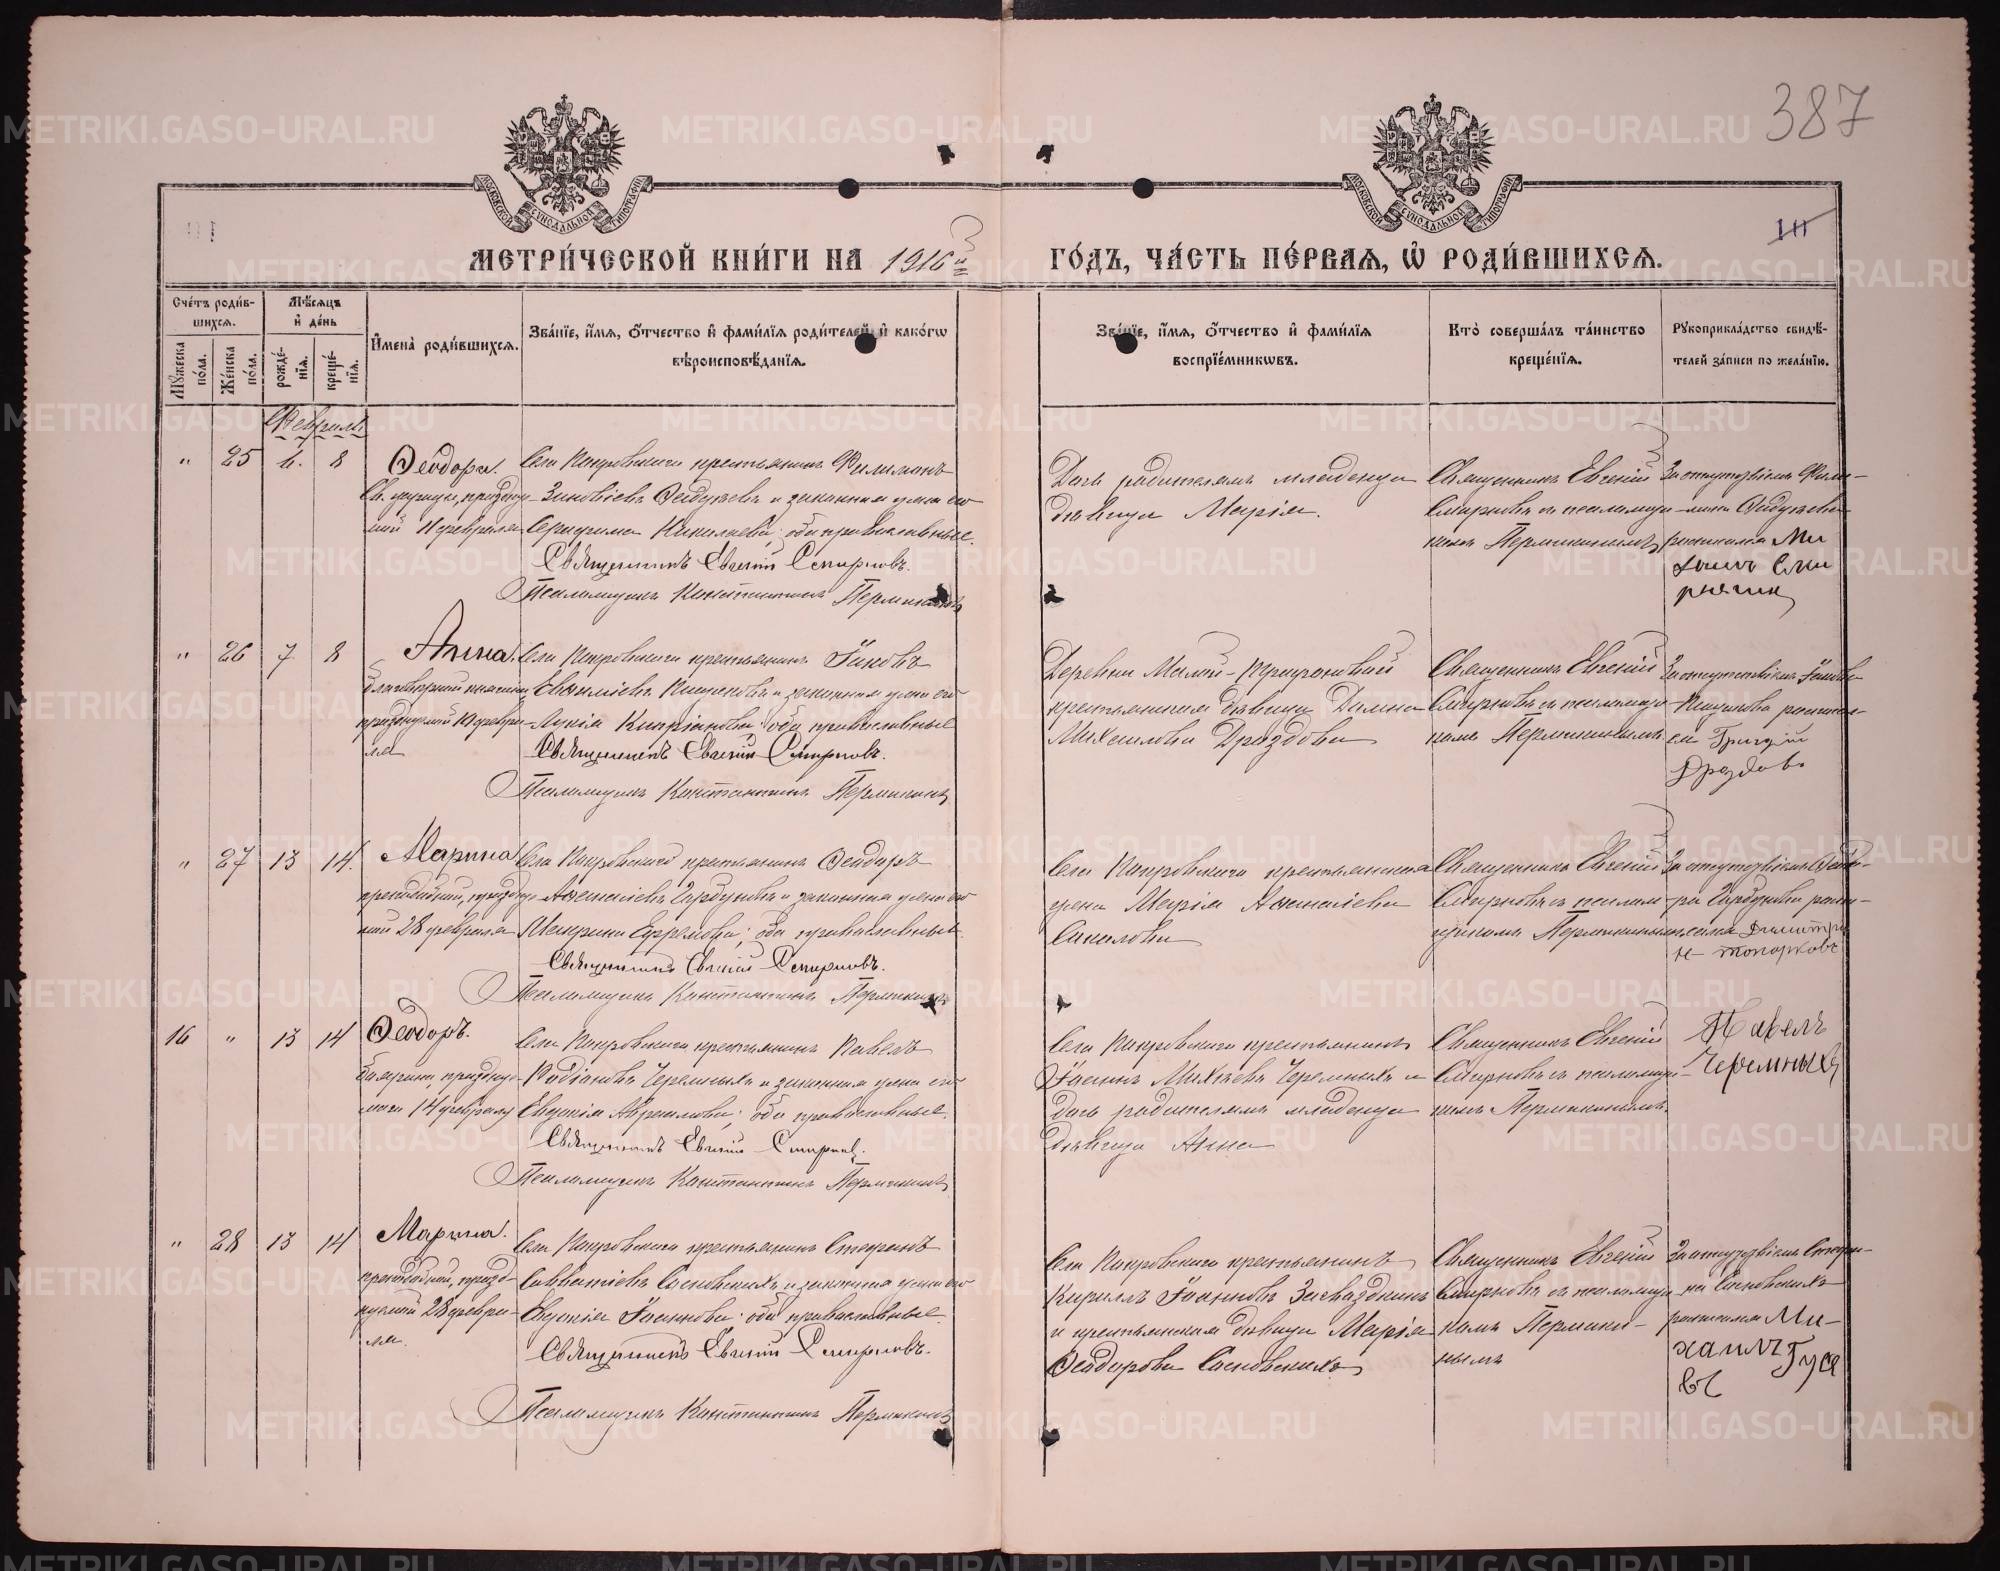 387
111
МЕТРИ́ЧЕСКОЙ КНИ́ГИ НА 1916й ГО́ДЪ, ЧА́СТЬ ПЕ́РВАѦ, Ѡ҆ РОДИ́ВШИХСѦ.
Сче́тъ роди́вшихсѧ.
Мꙋжеска по́ла.
Же́нска по́ла.
Мѣ́сѧцъ и҆ де́нь
рожде́нїѧ.
креще́нїѧ.
И҆мена̀ роди́вшихсѧ.
Зва́нїе, и҆́мѧ, ѻ҆́тчество и҆ фами́лїѧ роди́телей, и҆ како́гѡ
вѣроисповѣ́данїѧ.
Зва́нїе, и҆́мѧ, ѻ҆́тчество и҆ фами́лїѧ
воспрїе́мникѡвъ.
Кто̀ соверша́лъ та́инство
креще́нїѧ.
Рꙋкоприкла́дство свидѣ́-
телей за́писи по жела́нїю.
Февраль
" 25 6. 8
Ѳеодора.
Св. царицы, праздну-
мой 11 февраля
Села Покровскаго крестьянинъ Филимонъ
Зиновіевъ и законная жена его
Серафима Николаева; оба православные.
Священникъ Евгеній Смирновъ.
Псаломщикъ Константинъ Пермикинъ
Дочь родителямъ младенца
дѣвица Марія.
Священникъ Евгеній
Смирновъ съ псаломщи-
комъ Пермикинымъ
За отсутствіемъ Фили-
мона
росписался Ми
хаилъ
" 26 7 8
Анна.
благовѣрной княгини
празднуемой 10 февра-
ля
Села Покровскаго крестьянинъ Іаковъ
и законная жена его
Лукія Кипріанова; оба православные
Священникъ Евгеній Смирновъ.
Псаломщикъ Константинъ Пермикинъ
Деревни Малой-
крестьянская дѣвица Домна
Михаилова Дроздова
Священникъ Евгеній
Смирновъ съ псаломщи-
комъ Пермикинымъ
За отсутствіемъ Іакова
росписал-
ся Григорій
Дроздовъ
" 27 13 14.
Марина
преподобной, праздну-
мой 28 февраля
Села Покровскаго крестьянинъ Ѳеодоръ
и законная жена его
Ефремова; оба православные.
Священникъ Евгеній Смирновъ.
Псаломщикъ Константинъ Пермикинъ
Села Покровскаго крестьянина
жена Марія
Соколова
Священникъ Евгеній
Смирновъ съ псалом-
щикомъ Пермикинымъ
За отсутствіемъ Ѳеодо-
ра роспи-
сался Дмитрі
й топорковъ
16 " 13 14
Ѳеодоръ.
праздну-
маго 14 февраля
Села Покровскаго крестьянинъ Павелъ
Родіоновъ Черемныхъ и законная жена его
Евдокія; оба православные.
Священникъ Евгеній Смирновъ.
Псаломщикъ Константинъ Пермикинъ
Села Покровскаго крестьянинъ
Іоаннъ Черемныхъ и
дочь родителямъ младенца
дѣвица Анна
Священникъ Евгеній
Смирновъ съ псаломщи-
комъ Пермикинымъ.
Павелъ
Черемныхъ
" 28 13 14
Марина.
преподобной, празд-
нуемой 28 февра-
ля.
Села Покровскаго крестьянинъ Стефанъ
Савватіевъ Сосновскихъ и законная жена его
Евдокія Іоаннова; оба православные.
Священникъ Евгеній Смирновъ.
Псаломщикъ Константинъ Пермикинъ
Села Покровскаго крестьянинъ
Кириллъ Іоанновъ
и крестьянская дѣвица Марія
Ѳеодорова Сосновскихъ
Священникъ Евгеній
Смирновъ съ псаломщи-
комъ Пермики-
нымъ
За отсутствіемъ Стефа-
на Сосновскихъ
росписался Ми-
хаилъ Гусе
въ